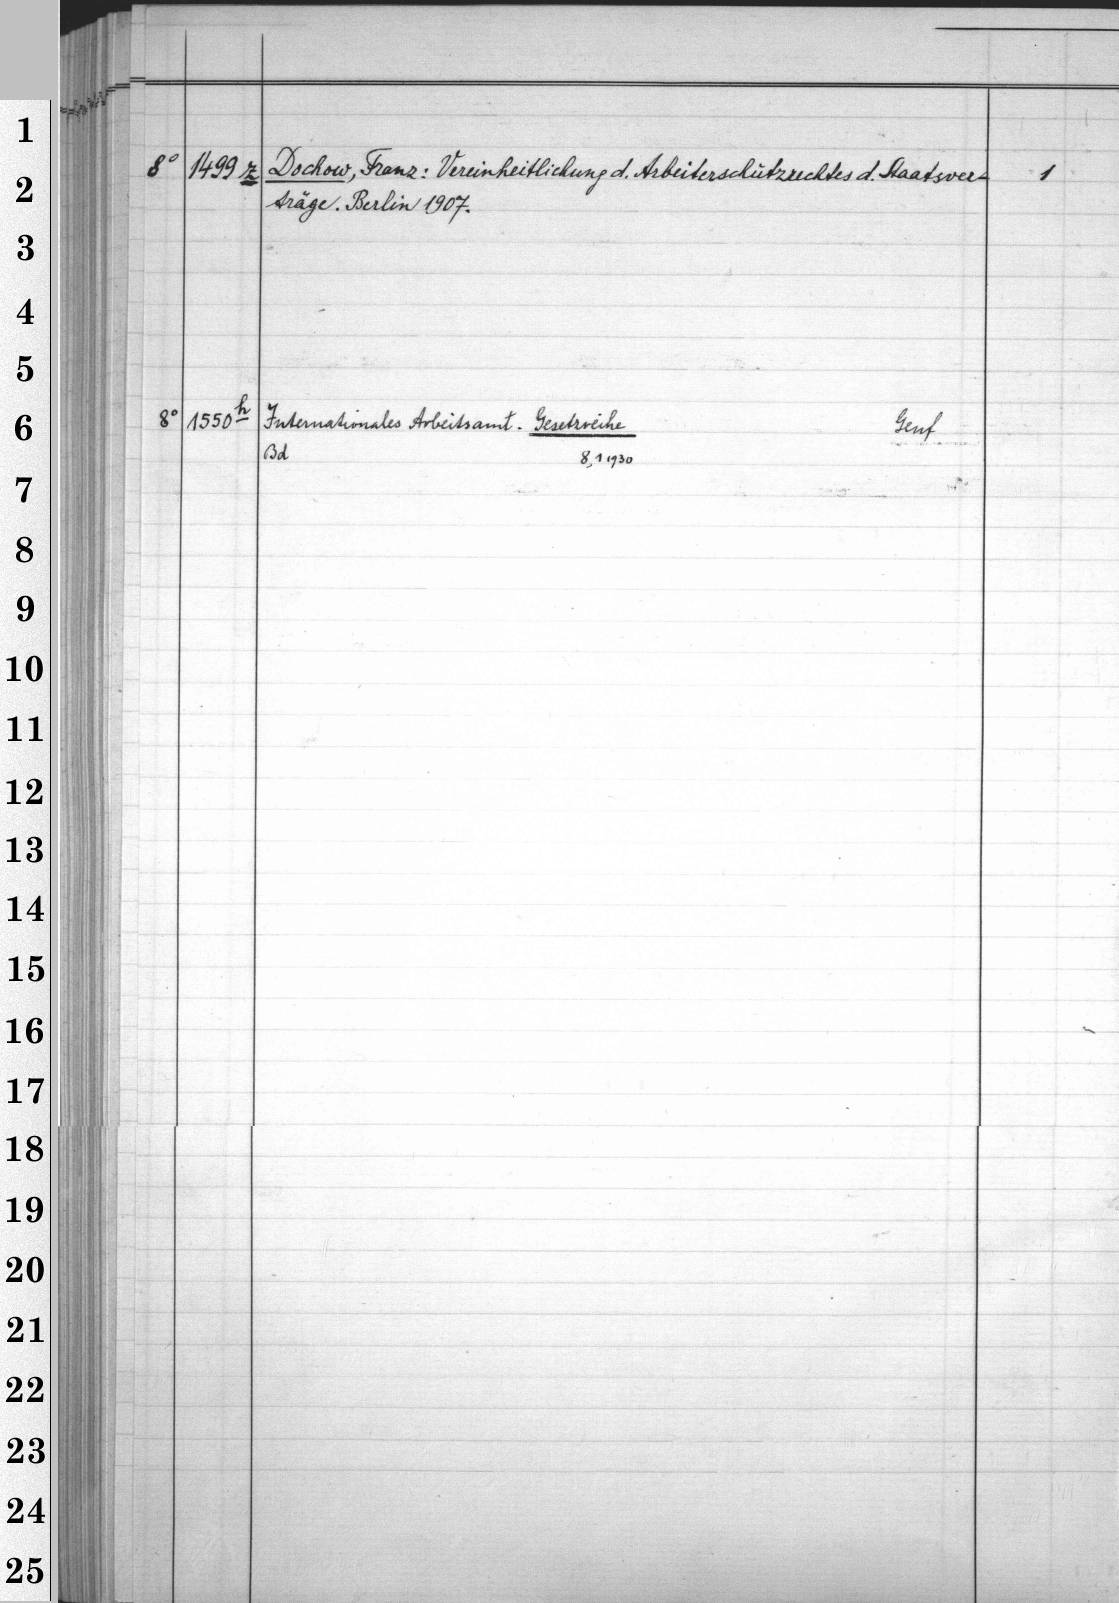 1
8° 1499 z Dochow, Franz: Vereinheitlichung d. Arbeiterschutzrechtes d. Staatsver- 1
2
träge. Berlin 1907.
3
4
5
8° 1550 h Internationales Arbeitsamt. Gesetzreihe Genf
6
Bd 8,1 1930
7
8
9
10
11
12
13
14
15
16
17
18
19
20
21
22
23
24
25